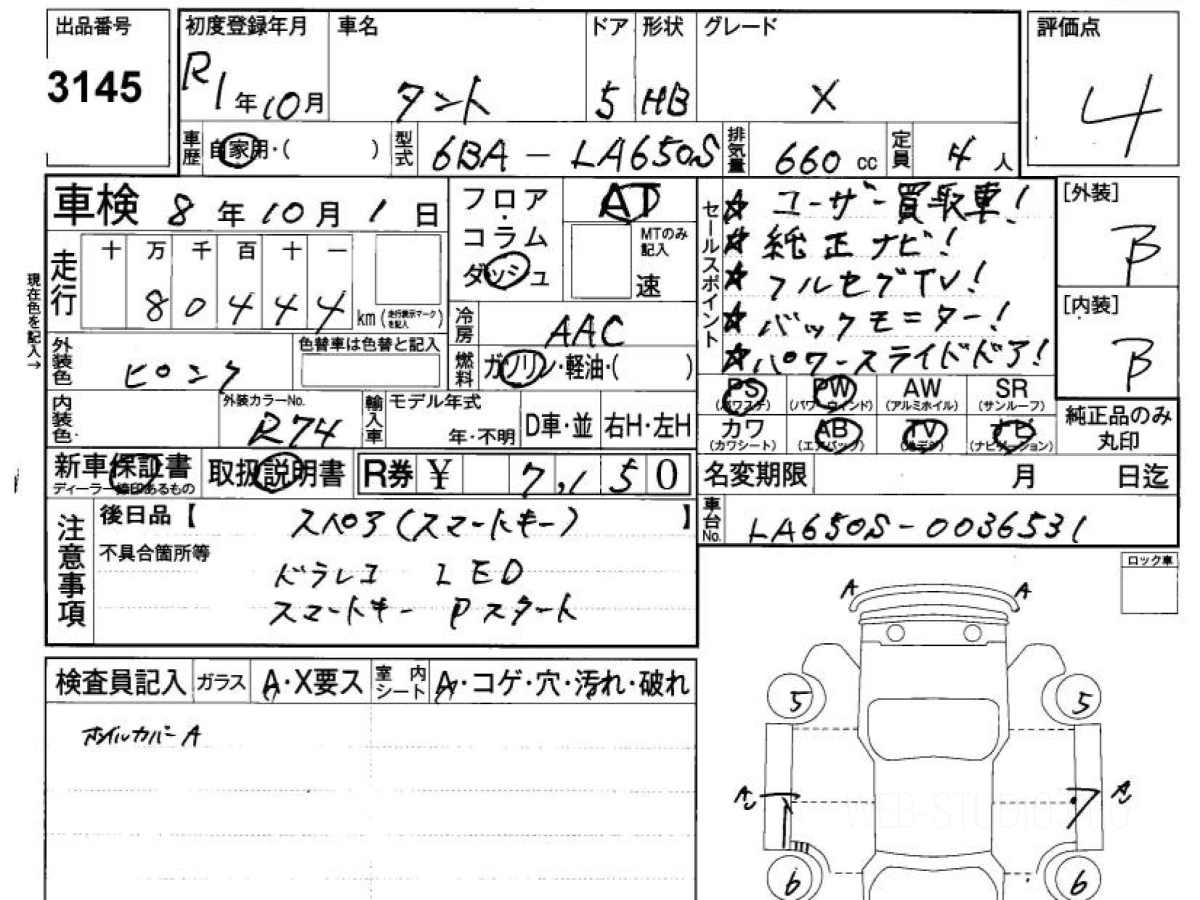 出品番号 初度登録年月 車名 ドア 形状 グレード 評価点
3145 R1年10月 タント 5 HB X 4
車歴 自家用・( ) 型式 6BA-LA650S 排気量 660cc 定員 4人
車検 8年10月1日
フロア・コラム ダッシュ AT MTのみ記入 速
走行 十 万 千 百 十 一
80444 km (走行表示マークを記入)
現在色を記入→
冷房 AAC
燃料 ガソリン・軽油・( )
外装色 ピンク 色替車は色替と記入
内装色 外装カラーNo. R74 輸入車 モデル年式 年・不明 D車・並 右H・左H
セールスポイント
☆ ユーザー買取車!
☆ 純正ナビ!
☆ フルセグTV!
☆ バックモニター!
☆ パワースライドドア!
[外装] B
[内装] B
PS PW AW SR
(パワステ) (パワーウィンド) (アルミホイル) (サンルーフ)
カワ AB TV ナビ
(カワシート) (エアバック) (ナビゲーション)
純正品のみ丸印
新車保証書 取扱説明書 R券 ¥ 7,150
ディーラー捺印あるもの
名変期限 月 日迄
車台No. LA650S-0036531
注意事項
後日品【 スペア(スマートキー) 】
不具合箇所等
ドラレコ LED
スマートキー Pスタート
ロック車
A A
検査員記入 ガラス A・X要ス 室内シート A・コゲ・穴・汚れ・破れ
ホイルカバー A
5 5
A A
WEB-STUDIO.PRO
6 6